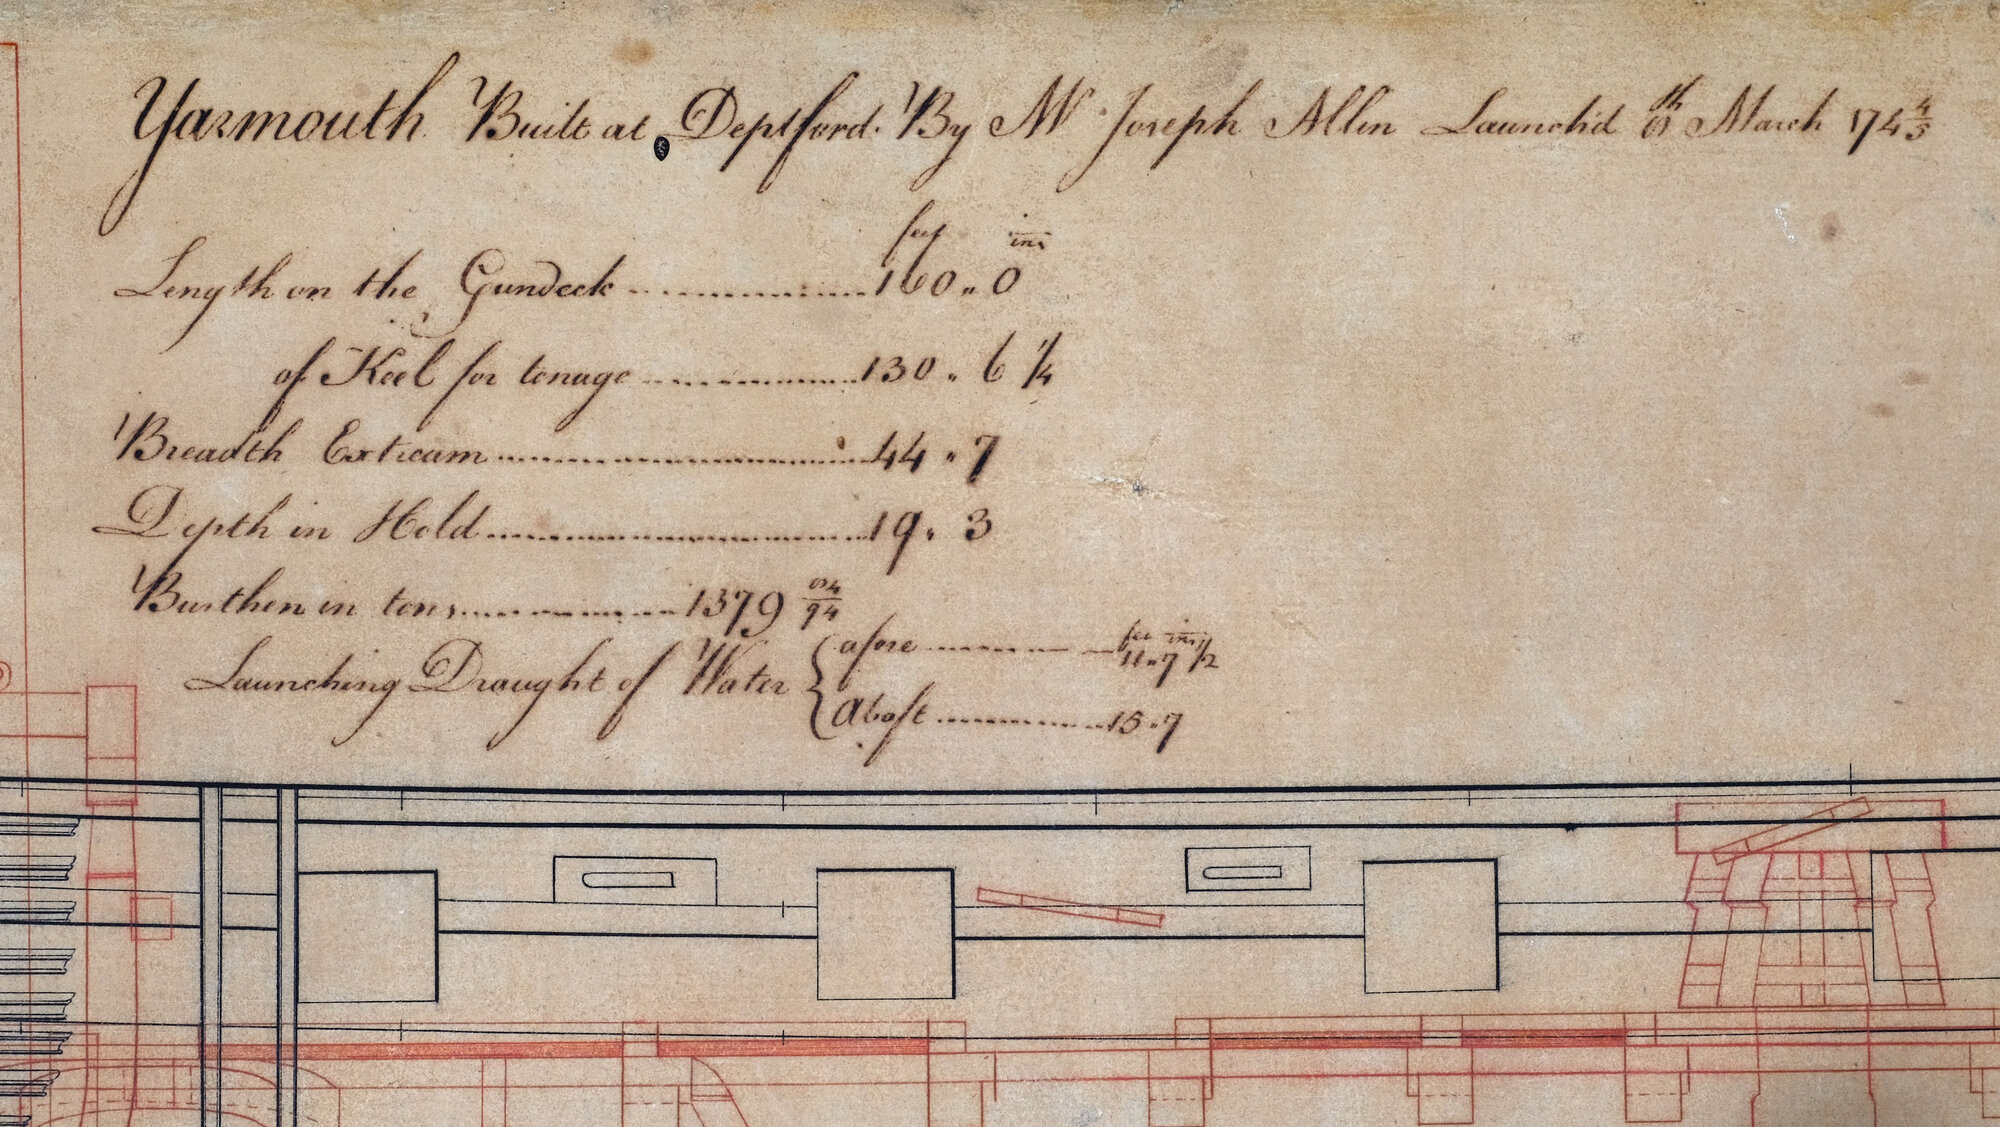 Yarmouth Built at Deptford. By Mr Joseph Allin Launch'd 8th March 174 4/5
feet ins
Length on the Gundeck ................ 160 " 0
of Keel for tonage ................ 130 " 6 1/4
Breadth Extream ................ 44 " 7
Depth in Hold ................ 19 " 3
Burthen in tons ................ 1379 34/94
feet ins
Launching Draught of Water { afore ............ 11 " 7 1/2
Abaft ............ 15 " 7